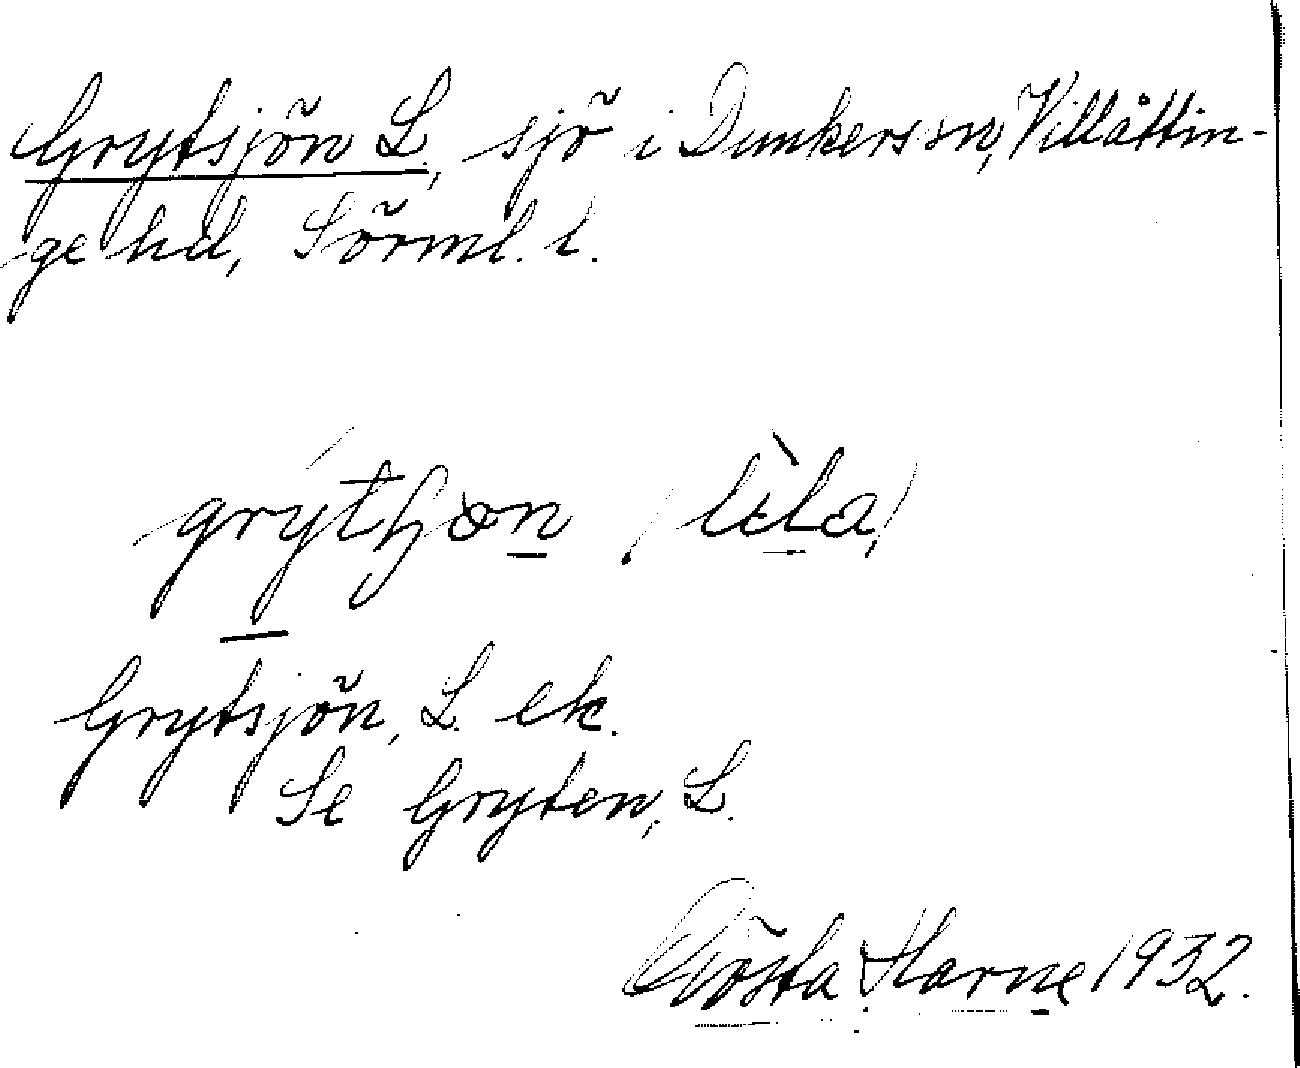 Grytsjön L., sjö i Dunkers sn, Villåttin-
ge hd, Sörml. l.
Grytsjön, L. ek.
Se Gryten, L.
Gösta Harne 1932.